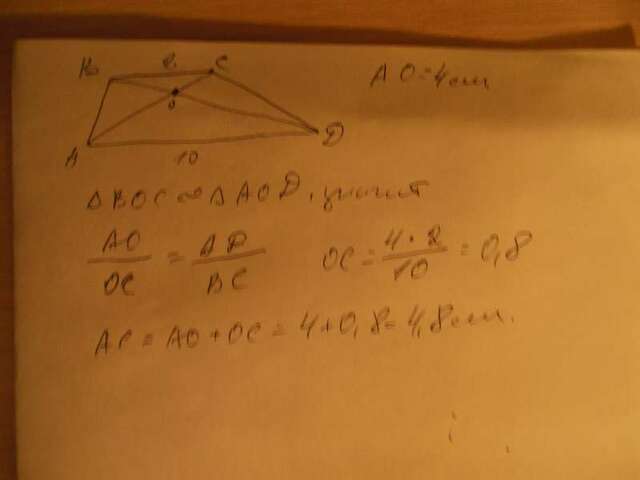 B 2 C
AO = 4 см
O
A D
10
△BOC ∞ △AOD, значит
AO/OC = AD/BC OC = 4·2/10 = 0,8
AC = AO + OC = 4 + 0,8 = 4,8 см.